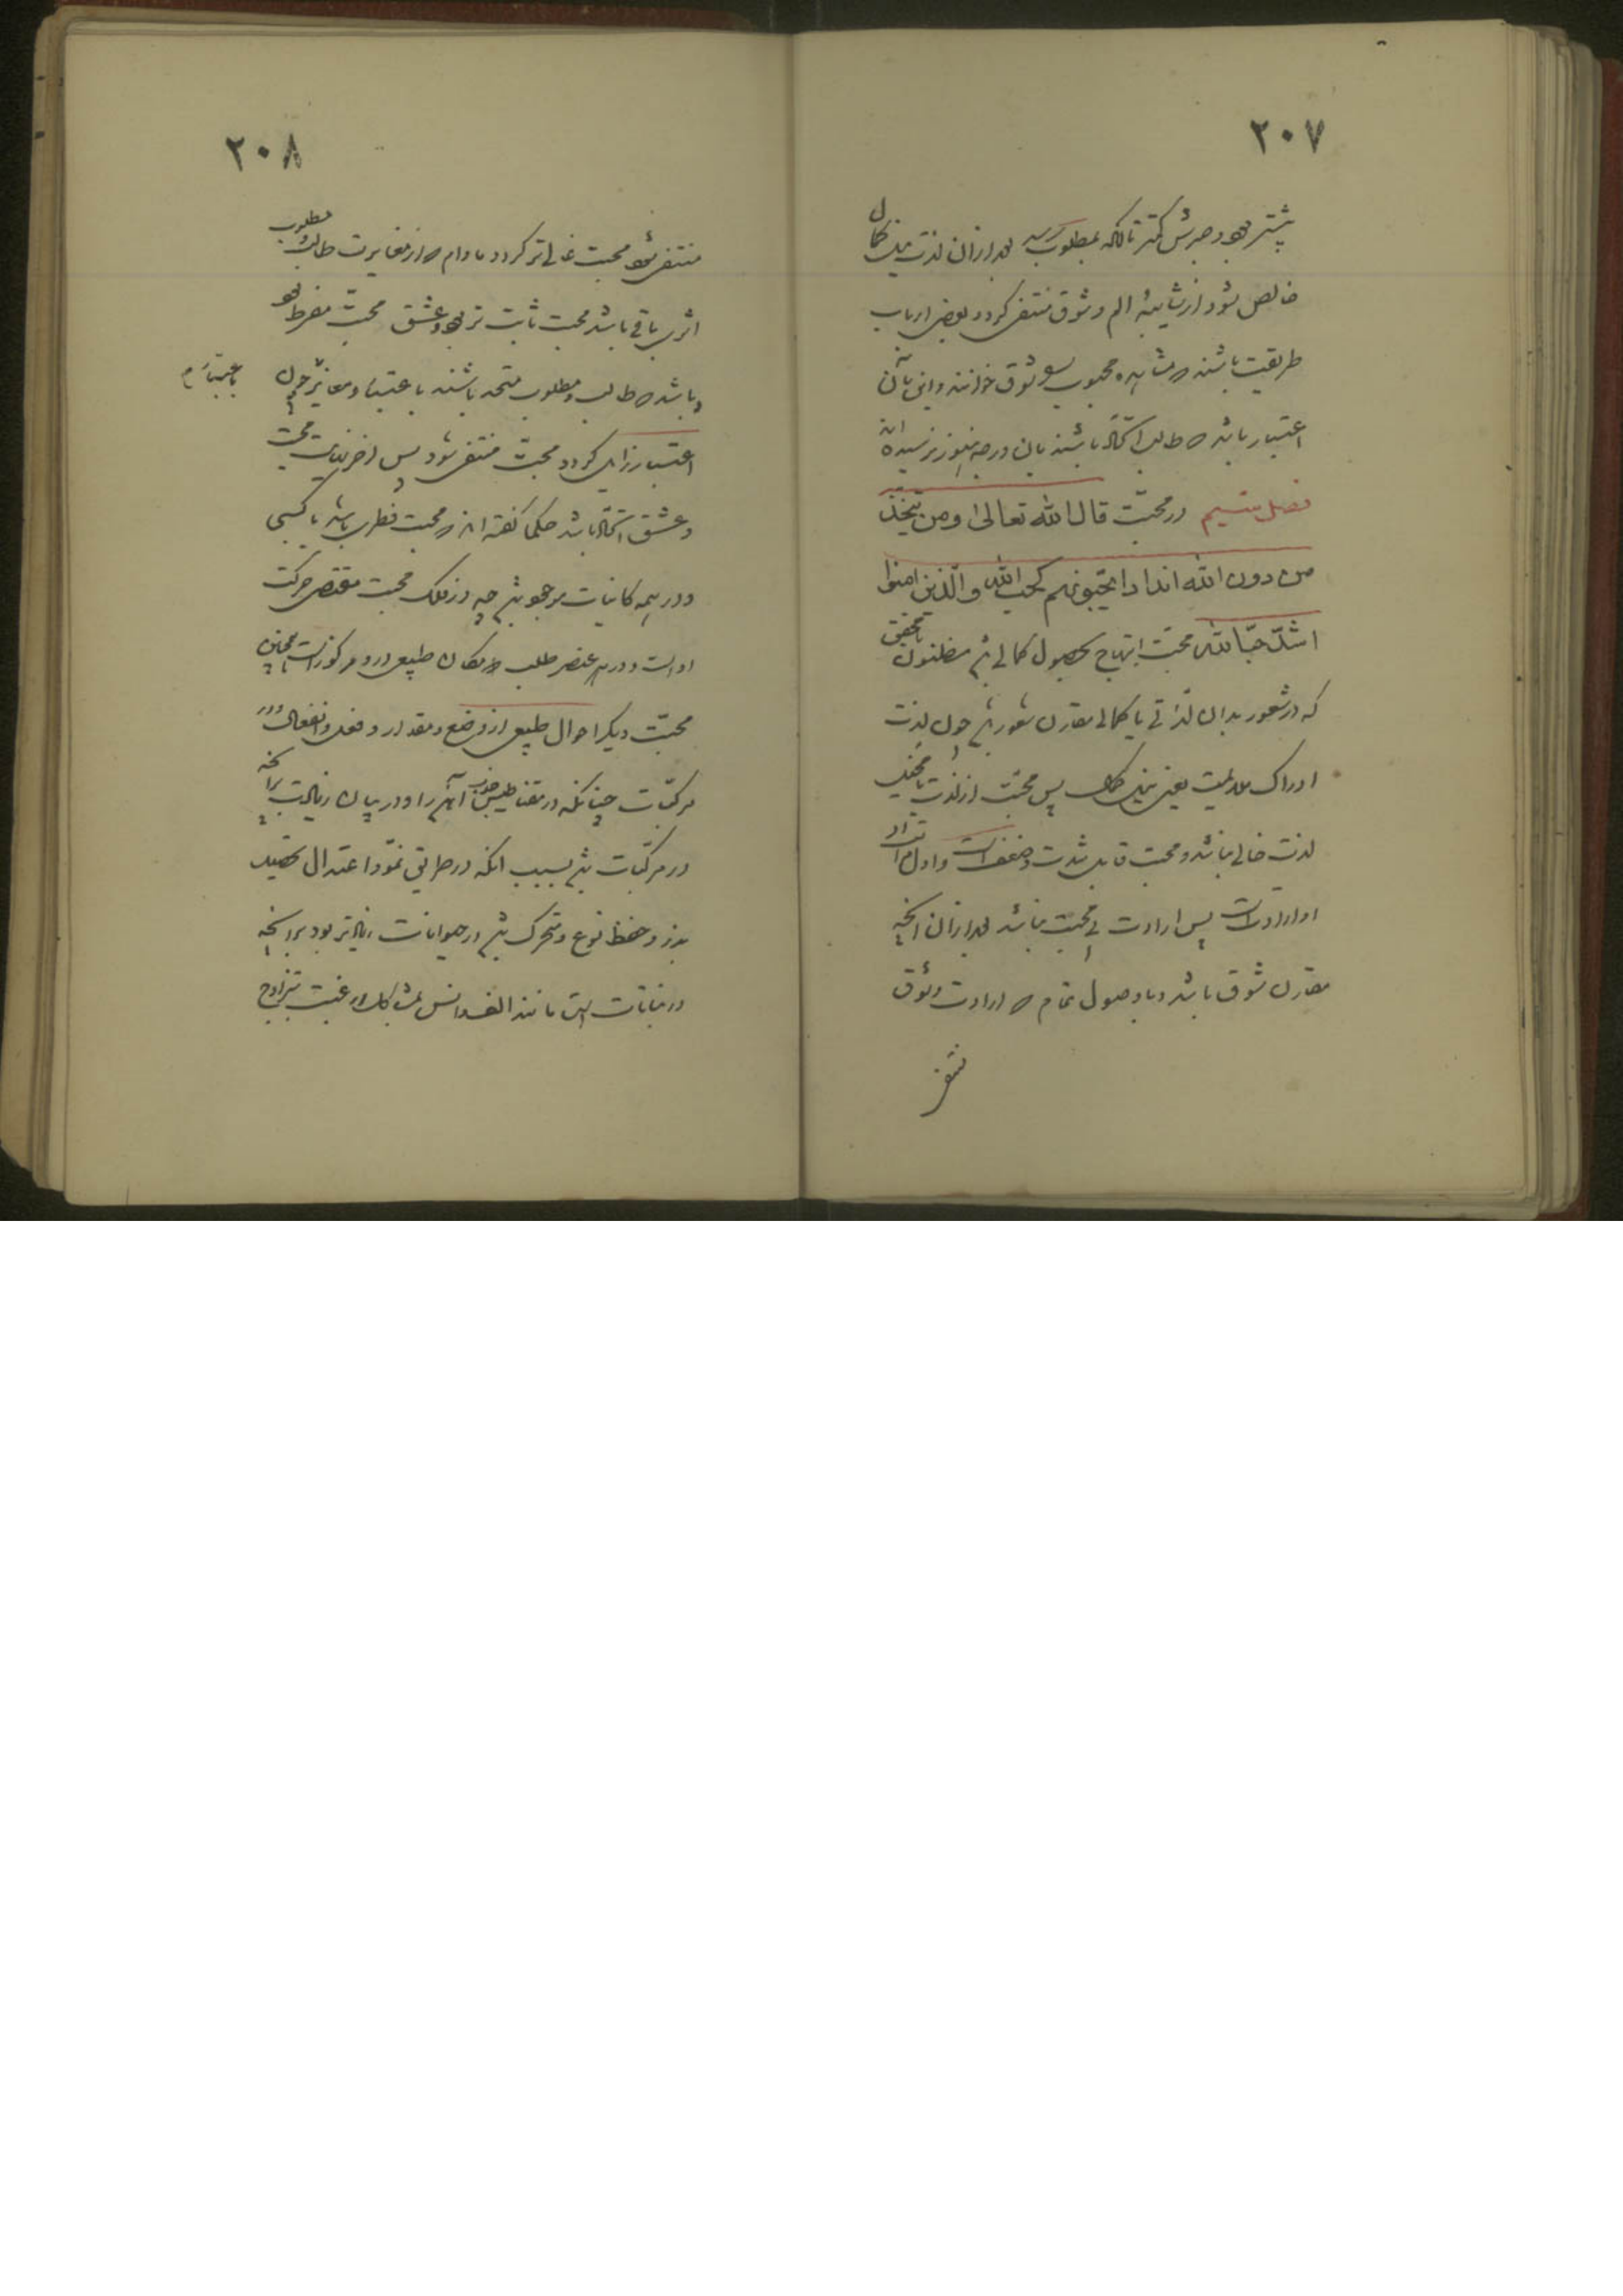 ۲۰۷
بیشتر بود و صبرش کمتر تا آنکه بمطلوب رسد بعد از ان لذت نیل کمال
خالص شود از شایبهٔ الم و شوق منتفی کردد و بعضی ارباب
طریقت باشند که مشاهده محبوب را شوق خوانند و این بآن
اعتبار باشد که طالب اتحاد باشند و بان درجه هنوز نرسیده اند
فصل سیم در محبّت قال الله تعالی و من یتخذ
من دون الله اندادا یحبّونهم کحب الله و الّذین امنوا
اشدّ حبّا لله محبّت ابتهاج بحصول کمالی بود مظنون یا محقق
که در شعور بدان لذّتی یا کمالی مقارن شعور بود چون لذت
ادراک ملایمت یعنی نیل کمال پس محبّت از لذت یا تخیل
لذت خالی نباشد و محبت قابل شدت و ضعف است و اول مراتب
او ارادت است پس ارادت بی محبت نباشد بعد از ان انچه
مقارن شوق باشد و با وصول تمام که ارادت و شوق
منتفی
۲۰۸
منتفی شود محبت غالب تر کردد و مادام که از مغایرت طالب و مطلوب
اثری باقی باشد محبت ثابت تر بود و عشق محبت مفرط بود
و باشد که طالب و مطلوب متحد باشند باعتبار و مغایر چون
باعتباری م
اعتبار زایل کردد محبت منتفی شود پس اخر نهایت محبت
و عشق اتحاد باشد حکما کفته اند که محبت فطری باشد یا کسبی
و در همه کاینات موجود بود چه در فلک محبت مقتضی حرکت
اوست و در هر عنصر طلب که مکان طبیعی در و مرکوز است همچنین
محبّت دیکر احوال طبیعی از وضع و مقدار و فعل و انفعال و در
مرکبّات چنانکه در مغناطیس جذب آهن را و در نبات زیادت برانچه
در مرکّبات بود بسبب انکه در طریق نموّ و اعتدال و تحصیل
بذر و حفظ نوع متحرک بود و در حیوانات زیاده تر بود برانچه
در نباتات است مانند الف و انس بمشاکل و رغبت بتزاوج